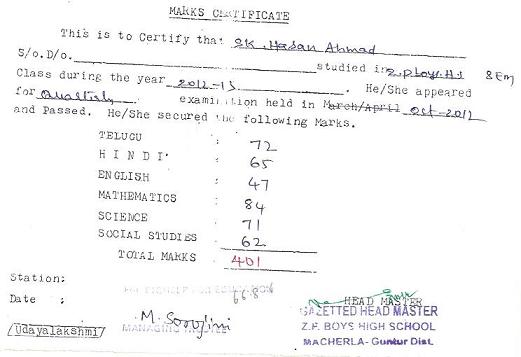 MARKS CERTIFICATE
This is to Certify that SK. Hasan Ahmad
S/o.D/o. studied in Z.P. Boys H.S 8 Em
Class during the year 2012-13 He/She appeared
for Quarterly examination held in March/April Oct-2012
and Passed. He/She secured the following Marks.
TELUGU : 72
HINDI : 65
ENGLISH : 47
MATHEMATICS : 84
SCIENCE : 71
SOCIAL STUDIES : 62
TOTAL MARKS : 401
Station:
FOR EDUCATION
66.8%
Date :
HEAD MASTER
GAZETTED HEAD MASTER
M. Soroljini
MANAGING TRUSTEE
Z.P. BOYS HIGH SCHOOL
/Udayalakshmi/
MACHERLA- Guntur Dist.